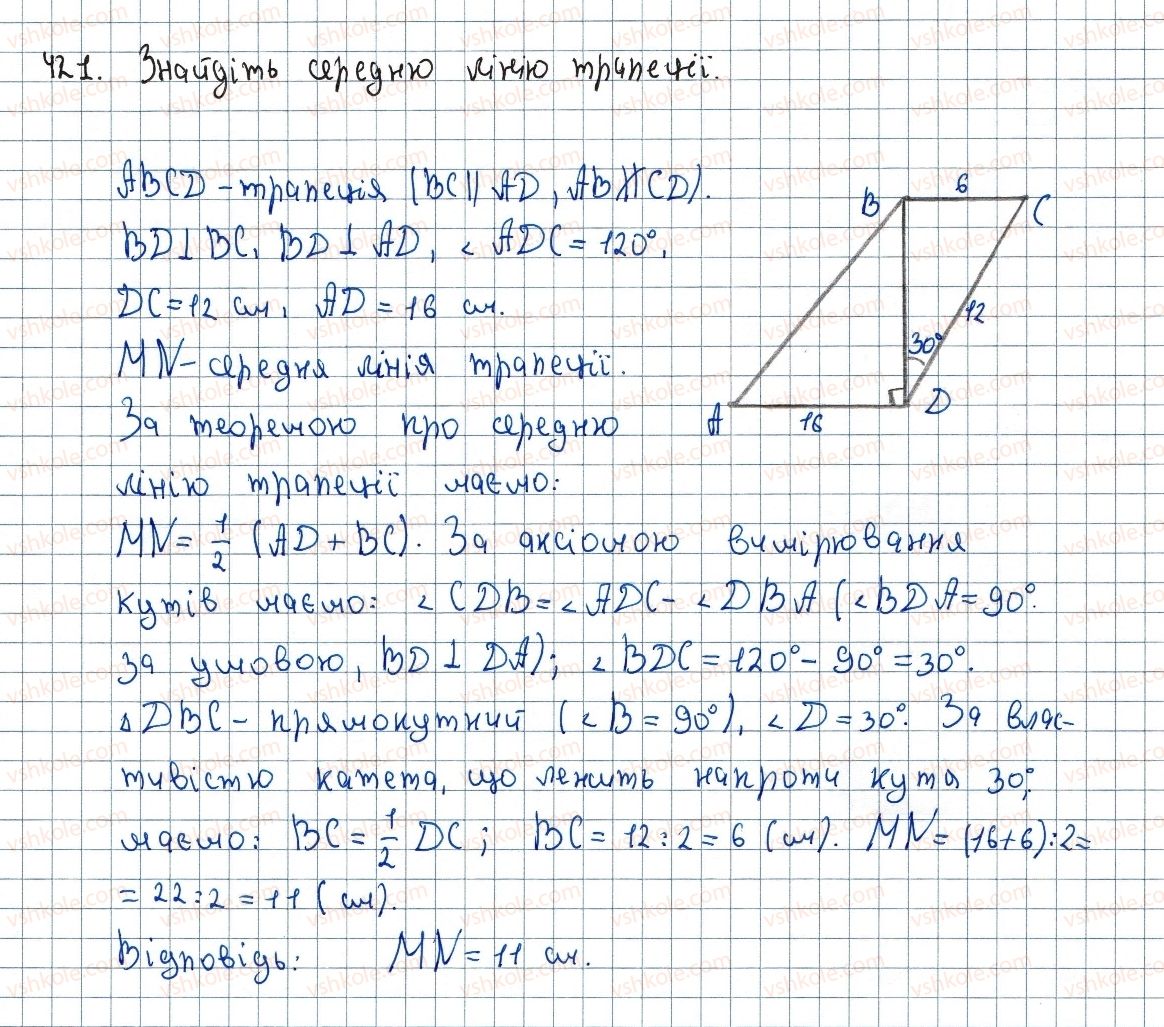 421. Знайдіть середню лінію трапеції.
ABCD - трапеція (BC || AD, AB ∦ CD).
BD ⊥ BC, BD ⊥ AD, ∠ ADC = 120°,
DC = 12 см, AD = 16 см.
MN - середня лінія трапеції.
За теоремою про середню
лінію трапеції маємо:
MN = 1/2 (AD + BC). За аксіомою вимірювання
кутів маємо: ∠ CDB = ∠ ADC - ∠ DBA (∠ BDA = 90°
за умовою, BD ⊥ DA); ∠ BDC = 120° - 90° = 30°.
∆ DBC - прямокутний (∠ B = 90°), ∠ D = 30°. За влас-
тивістю катета, що лежить напроти кута 30°,
маємо: BC = 1/2 DC; BC = 12 : 2 = 6 (см). MN = (16 + 6) : 2 =
= 22 : 2 = 11 (см).
Відповідь: MN = 11 см.
B 6 C
12
30°
A 16 D
vshkole.com